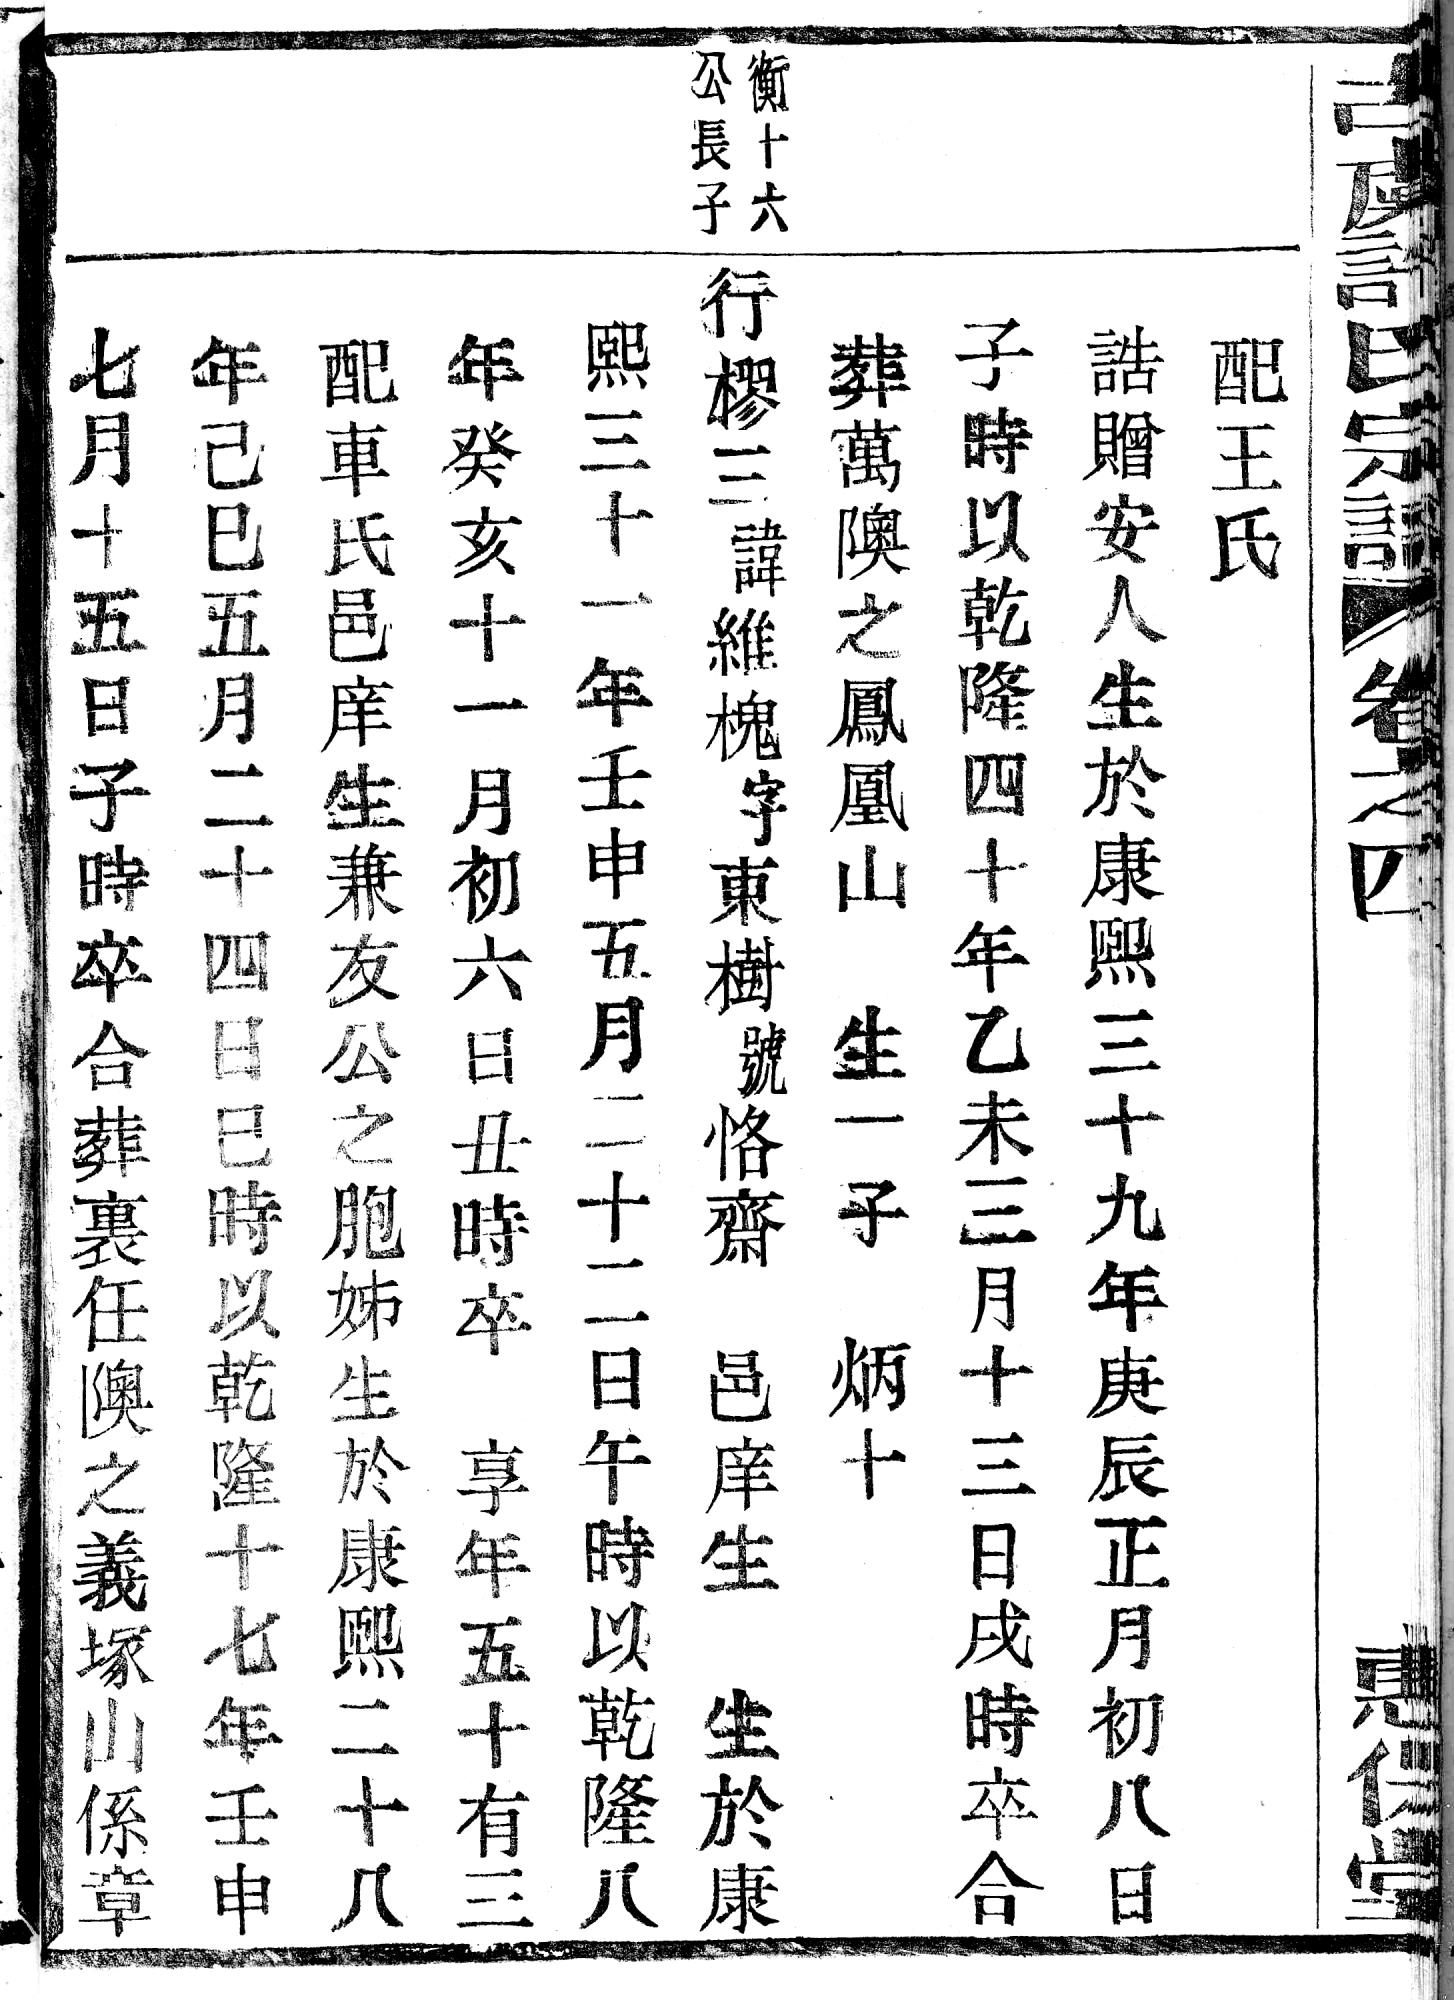 氏宗譜 卷之四
堂
配王氏
誥贈安人生於康熙三十九年庚辰正月初八日
子時以乾隆四十年乙未三月十三日戌時卒合
葬萬隩之鳳凰山 生一子 炳十
衡十六
公長子
行樛三諱維槐字東樹號恪齋 邑庠生 生於康
熙三十一年壬申五月二十二日午時以乾隆八
年癸亥十一月初六日丑時卒 享年五十有三
配車氏邑庠生兼友公之胞姊生於康熙二十八
年己巳五月二十四日巳時以乾隆十七年壬申
七月十五日子時卒合葬裏任隩之義塚山係章